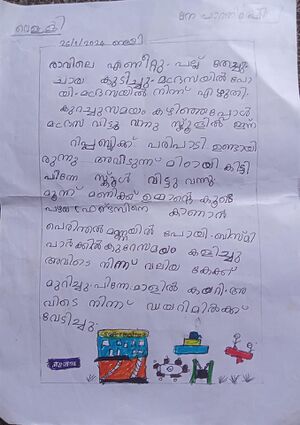 വെള്ളി
26/1/2024
രാവിലെ എണീറ്റു. പല്ല് തേച്ചു.
ചായ കുടിച്ചു. മദ്രസയിൽ പോ
യി. മദ്രസയിൽ നിന്ന് എഴുതി.
കുറച്ചുസമയം കഴിഞ്ഞപ്പോൾ
മദ്രസ വിട്ടു വന്നു സ്കൂളിൽ ഇന്ന്
റിപ്പബ്ലിക്ക് പരിപാടി ഉണ്ടായി
രുന്നു. അവിടുന്ന് മിഠായി കിട്ടി
പിന്നേ സ്കൂൾ വിട്ടു വന്നു.
മൂന്ന് മണിക്ക് ഉമ്മാന്റെ കൂടെ
പഴയ ഫ്രണ്ട്സിനെ കാണാൻ
പെരിന്തൽമണ്ണയിൽ പോയി.
പാർക്കിൽ കുറേസമയം കളിച്ചു
അവിടെ നിന്ന് വലിയ കേക്ക്
മുറിച്ചു. പിന്നേ മാളിൽ കയറി. അ
വിടെ നിന്ന് ഡയറിമിൽക്ക്
വേടിച്ചു.